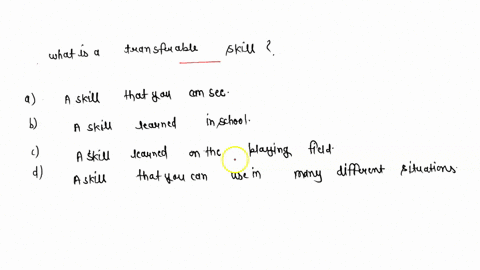 what is a transferable skill?
a) A skill that you can see.
b) A skill learned in school.
c) A skill learned on the playing field.
d) A skill that you can use in many different situations